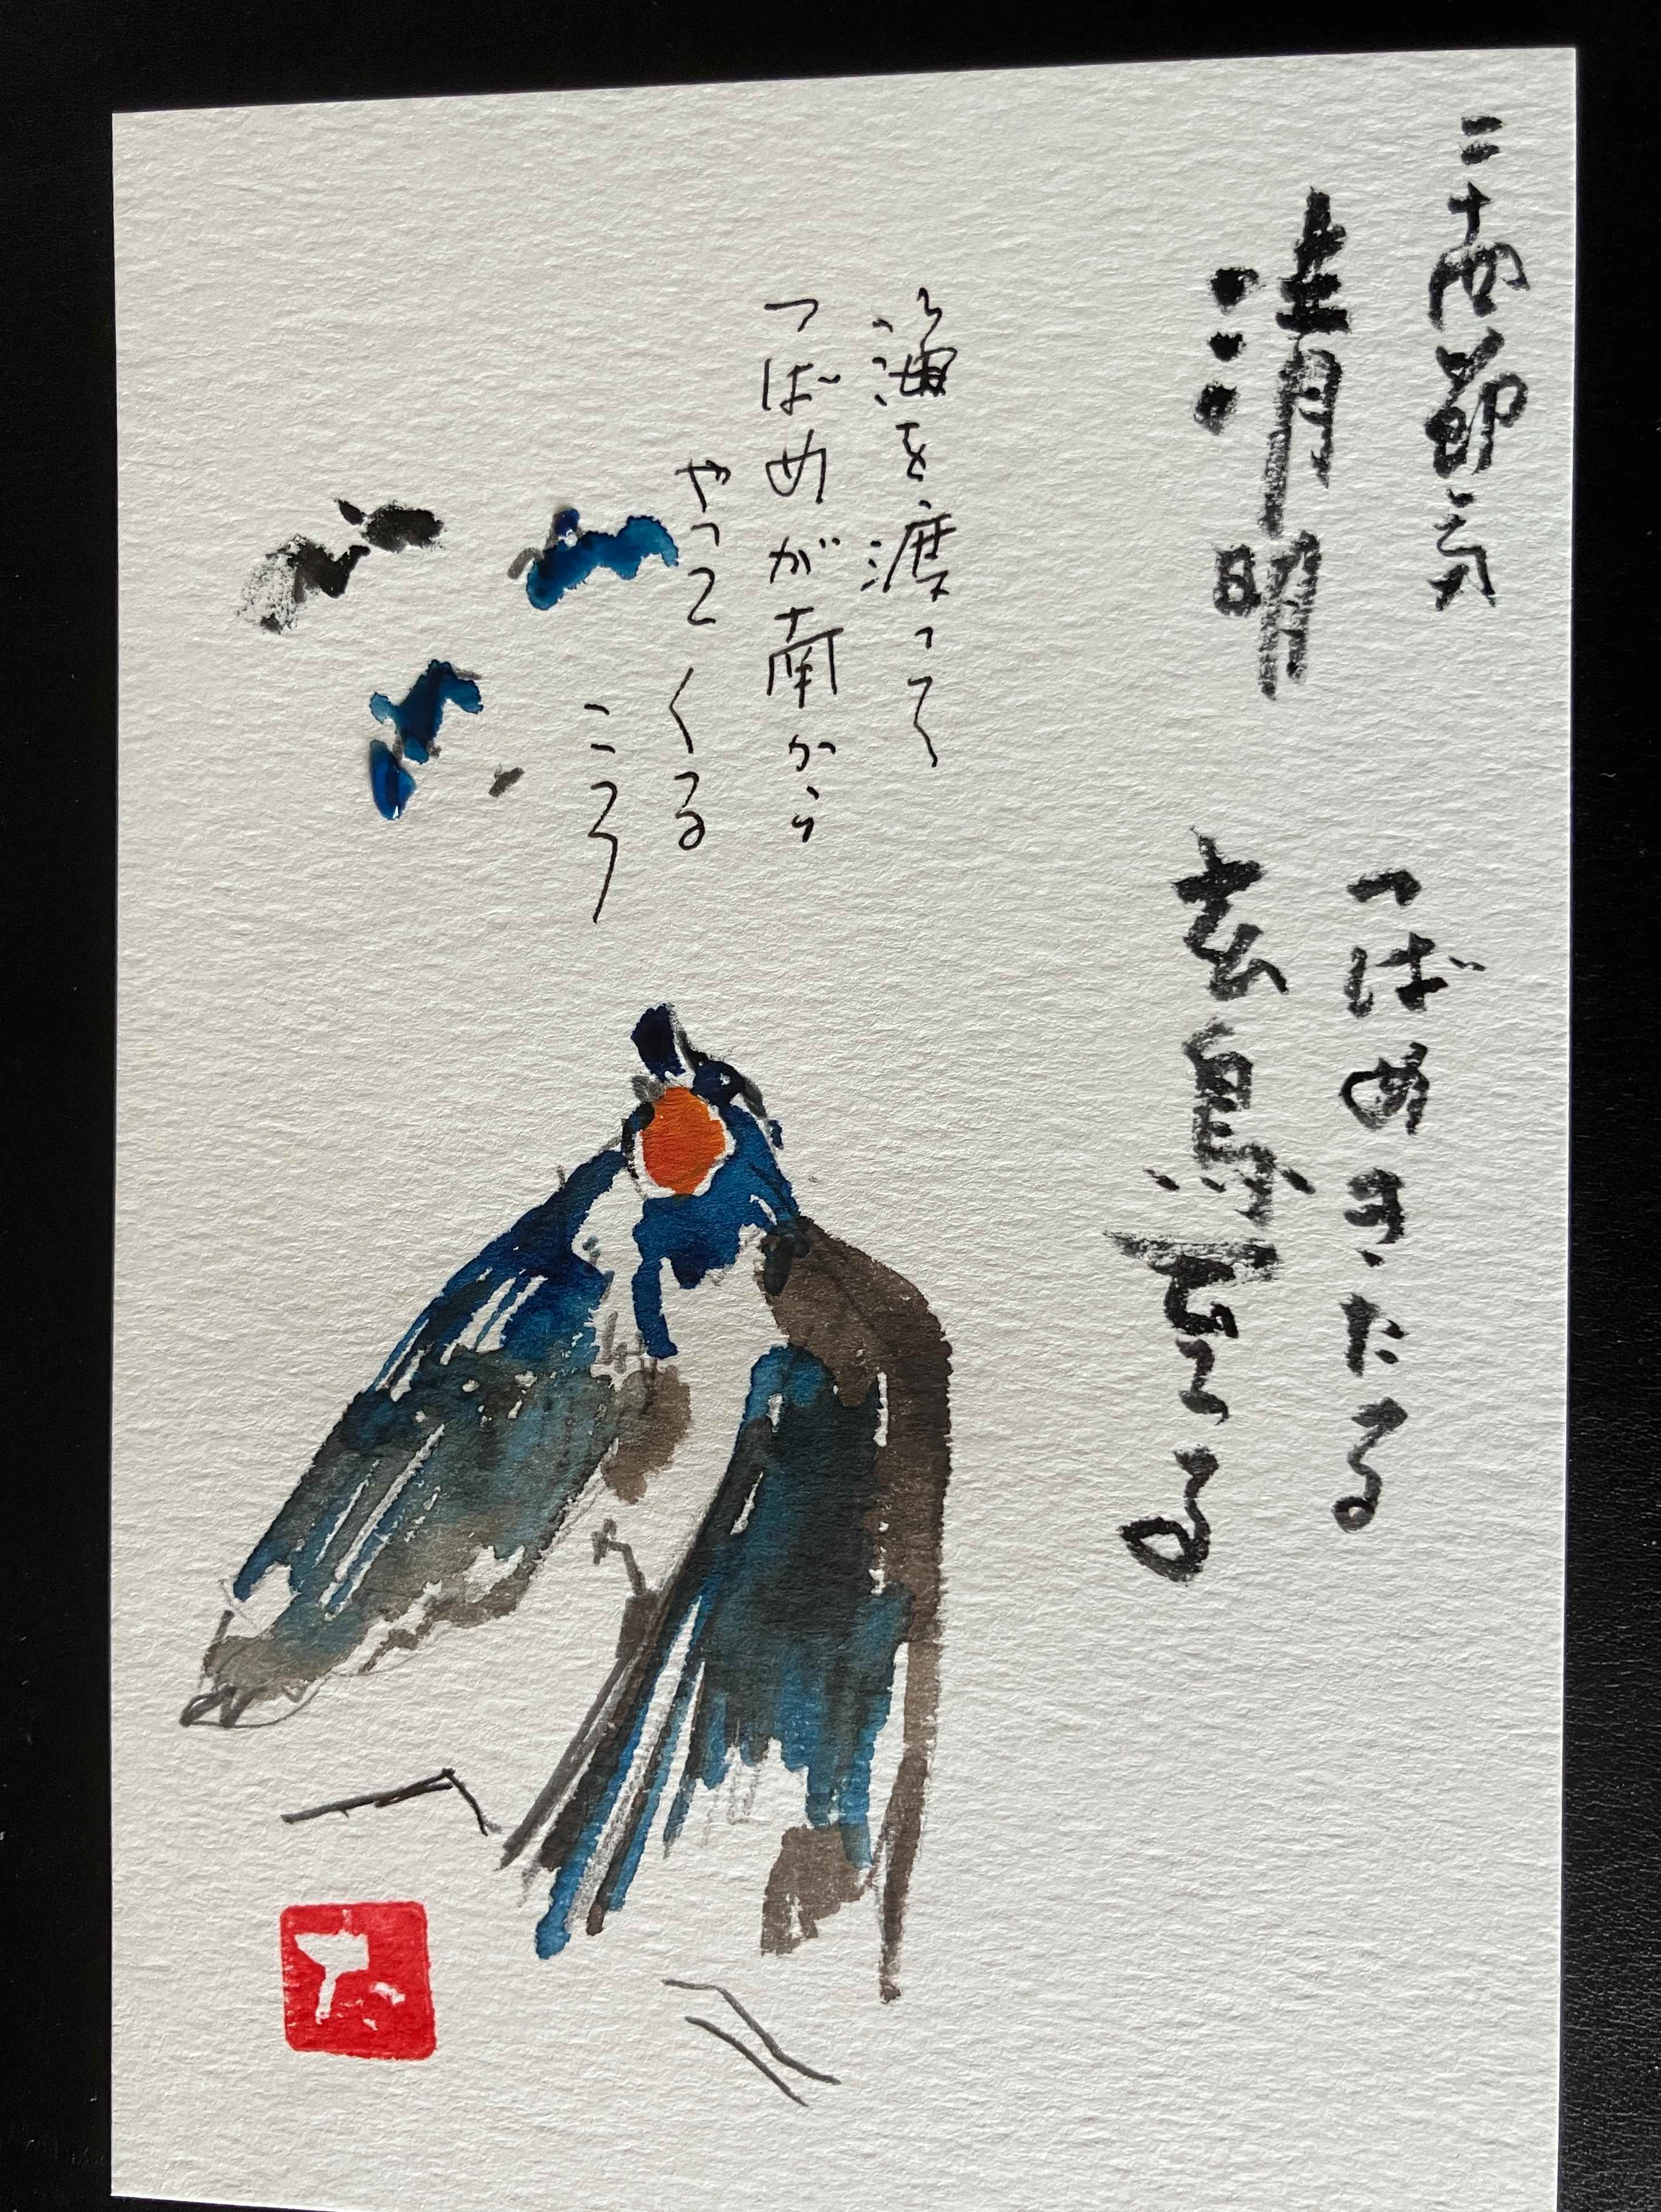 二十四節気
清明
つばめきたる
玄鳥至る
海を渡って
つばめが南から
やってくる
ころ